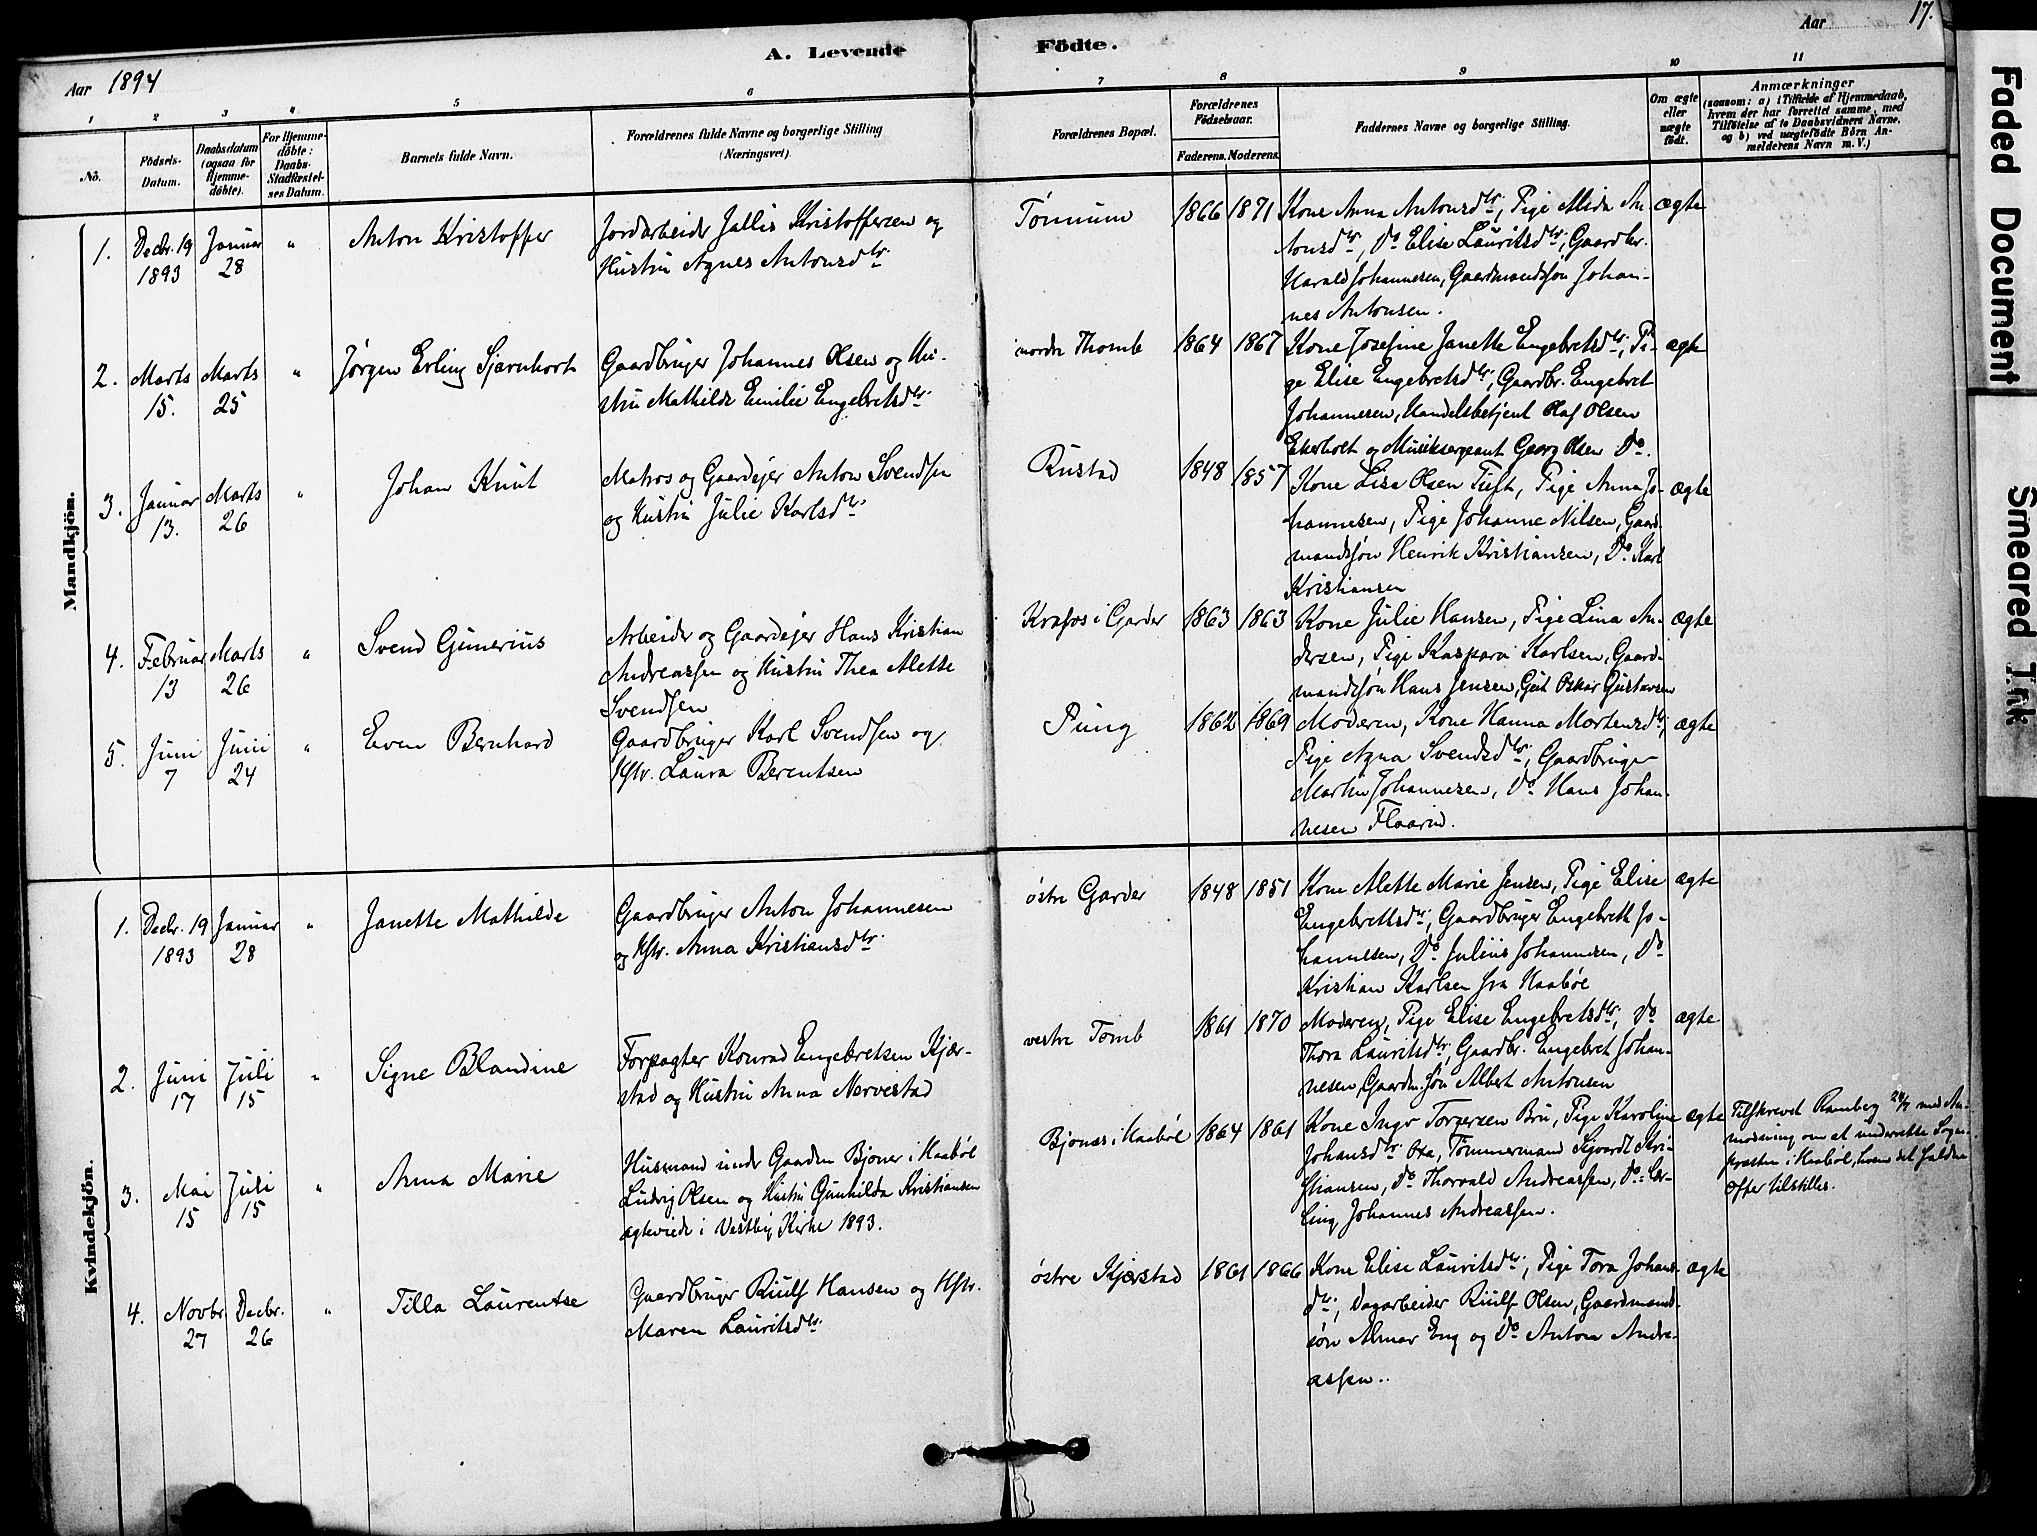 Aar 1894
A. Levende
Födte.
Aar
17.
1
2
3
4
5
6
7
8
9
10
11
No.
Födsels-
Datum.
Daabsdatum
(ogsaa for
Hjemme-
döbte).
For Hjemme-
döbte:
Daabs-
Stadfæstel-
ses Datum.
Barnets fulde Navn.
Forældrenes fulde Navne og borgerlige Stilling
(Næringsvei).
Forældrenes Bopæl.
Forældrenes
Födselsaar.
Faderens. Moderens.
Faddernes Navne og borgerlige Stilling.
Om ægte
eller
uægte
født.
Anmærkninger
(saasom: a) i Tilfælde af Hjemmedaab,
hvem der har forrettet samme, med
Tilföielse af to Daabsvidners Navne,
og b) ved uægtefödte Börn An-
melderens Navn m. V.)
Mandkjön.
1.
Decbr. 19
1893
Januar
28
"
Anton Kristoffer
Jordarbeider Jallis Kristoffersen og
Hustru Agnes Antonsdtr.
1866
1871
Kone Anna Antonsdtr., Pige Alida An-
tonsdtr., Do Elise Lauritsdtr., Gaardbr.
Harald Johannesen, Gaardmandssøn Johan-
nes Antonsen.
ægte
2.
Marts
15.
Marts
25
"
Jørgen Erling Stjernhort
Gaardbruger Johannes Olsen og Hu-
stru Mathilde Emilie Engebretsdtr.
nordre Thomb
1864
1867
Kone Josefine Janette Engebretsdtr., Pi-
ge Elise Engebretsdtr., Gaardbr. Engebret
Johannesen, Handelsbetjent Olaf Olsen
Ekerholt og Musiksergeant Georg Olsen Do.
ægte
3.
Januar
13.
Marts
26
"
Johan Knut
Matros og Gaardejer Anton Svendsen
og Hustru Julie Karlsdtr.
Rustad
1848
1857
Kone Lisa Olsen Tuft, Pige Anna Jo-
hannesen, Pige Johanne Nilsen, Gaard-
mandssøn Henrik Kristiansen, Do. Karl
Kristiansen
ægte
4.
Februar
13
Marts
26
"
Svend Gunerius
Arbeider og Gaardejer Hans Kristian
Andreassen og Hustru Thea Alette
Svendsen
Krafos i Garder
1863
1863
Kone Julie Hansen, Pige Lina An-
dersen, Pige Kaspara Karlsen, Gaard-
mandssøn Hans Jensen, Gut Oskar Gustavsen
ægte
5.
Juni
7
Juni
24
"
Even Bernhard
Gaardbruger Karl Svendsen og
Hstr. Laura Berentsen
Pung
1862
1869
Moderen, Kone Hanna Mortensdtr.,
Pige Agna Svendsdtr., Gaardbruger
Martin Johannesen, Do Hans Johan-
nesen Flaarud.
ægte
Kvindekjön.
1.
Decbr. 19
1893
Januar
28
"
Janette Mathilde
Gaardbruger Anton Johannesen
og Hstr. Anna Kristiansdtr.
østre Garder
1848
1851
Kone Alette Marie Jensen, Pige Elise
Engebretsdtr., Gaardbruger Engebrett Jo-
hannesen, Do Julius Johannesen, Do
Kristian Karlsen fra Haabøl
ægte
2.
Juni
17
Juli
15
"
Signe Blandine
Forpagter Konrad Engebretsen Kjær-
stad og Hustru Anna Nervestad
vestre Tomb
1861
1870
Moderen, Pige Elise Engebretsdtr., Do
Thora Lauritsdtr., Gaardbr. Engebret Johan-
nesen, Gaardm.søn Albert Antonsen
ægte
3.
Mai
15
Juli
15
"
Anna Marie
Husmand under Gaarden Bjoner i Haabøl
Ludvig Olsen og Hustru Gunhilda Kristiansen
ægteviede i Vestby Kirke 1893.
Bjoner i Haabøl
1864
1861
Kone Inga Torgersen Bru, Pige Karoline
Johansdtr. Oxa, Tømmermand Sivardt Kri-
stiansen, Do Thorvald Andreassen, Do:
Johannes Andreassen.
ægte
Tilskrevet Ramberg 24/7 med An-
modning om at underrette Sogne-
præsten i Haabøl, hvem det
Offer tilstilles.
4.
Novbr.
27
Decbr.
26
"
Tilla Laurentse
Gaardbruger Rulf Hansen og Hstr.
Maren Lauritsdtr.
østre Kjærstad
1861
1866
Kone Elise Lauritsdtr., Pige Tora Johans-
dtr., Dagarbeider Rulf Olsen, Gaardmand-
søn Almar Eng og Do Anton Andre-
assen.
ægte
Faded Document
Smeared Ink